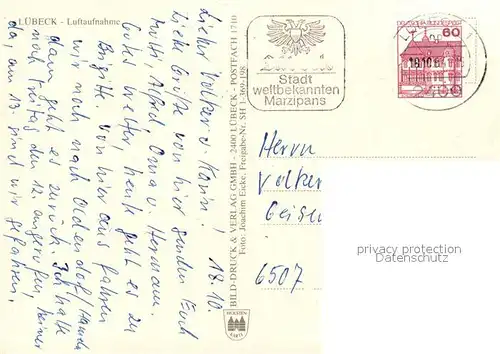 LÜBECK - Luftaufnahme
18.10.
Lieber Volker u. Karin!
Liebe Grüße von hier senden Euch
Mutti, Alfred Oma u. Hermann.
Gutes Wetter, heute geht es zu
Brigitte. Von hier aus fahren
wir noch nach Oldendorf/
dann geht es zurück. Ich hatte
noch Freitag den 12. angerufen, keiner
da, am 13. sind wir gefahren.
BILD-DRUCK & VERLAG GMBH - 2400 LÜBECK - POSTFACH 1710
Foto: Joachim Eicke, Freigabe-Nr. SH 1-369-198
HOLSTEN
KARTE
Stadt
weltbekannten
Marzipans
18.10.
60
Herrn
Volker
6507
privacy protection
Datenschutz